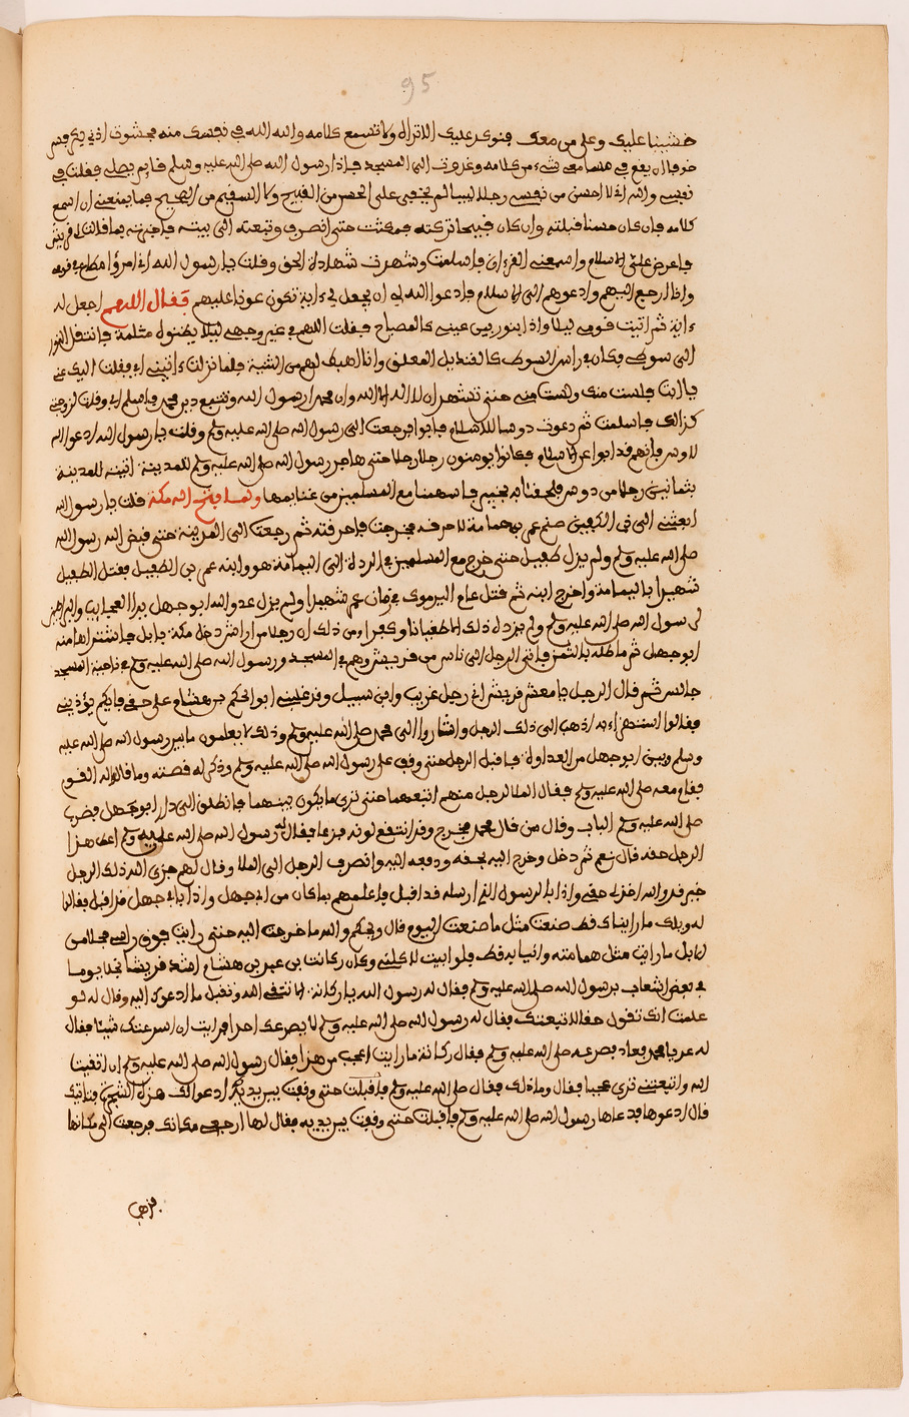 95
خشينا عليك وعلى من معك فنوكد عليك الا تراه ولا تسمع كلامه والله الله في نفسك منه فحشوت اذني بكرفس
خوفا ان يقع في مسامعي شيء من كلامه وغدوت الى المسجد فاذا رسول الله صلى الله عليه وسلم قايم يصلي فقلت في
نفسي والله اني لا احسن من نفسي رجلا لبيبا لم يخفى علي الحسن من القبيح ولا السقيم من الصحيح فما يمنعني ان اسمع
كلامه فان كان حسنا قبلته وان كان قبيحا تركته فمكثت حتى انصرف وتبعته الى بيته فاخبرته بما قالت لي قريش
فاعرض علي الاسلام واسمعني القرءان فاسلمت وشهدت شهادة الحق وقلت يا رسول الله اني امرؤ مطاع في قومه
واذا ارجع اليهم وادعوهم الى الاسلام فادعوا الله لي ان يجعل لي ءاية تكون عونا عليهم فقال اللهم اجعل له
ءاية ثم اتيت قومي ليلا واذا بنور بين عيني كالمصباح فقلت اللهم في غير وجهي ليلا يظنوه مثلمة فانتقل النور
الى سوطي فكان في راس السوط كالقنديل المعلق وانا اهبط لهم من الثنية فلما نزلت ءاتيني ابي فقلت اليك عني
يا ابت فلست منك ولست مني حتى تشهد ان لا اله الا الله وان محمدا رسول الله وتتبع دين محمد فاسلم ابي وقلت لزوجتي
كذالك فاسلمت ثم دعوت دوسا للاسلام فابوا فرجعت الى رسول الله صلى الله عليه وسلم وقلت يا رسول الله ادعوا الله
لاوس فانهم قد ابوا عن الاسلام فكانوا يومنون رجلا رجلا حتى هاجر رسول الله صلى الله عليه وسلم للمدينة اتيته للمدينة
بثمانين رجلا من دوس فلحقنا به بخيبر فاسهمنا مع المسلمين من غنايمها ولما فتح الله مكة قلت يا رسول الله
ابعثني الى ذي الكفين صنم عمرو بن حمامة لاحرقه فخرجت فاحرقته ثم رجعت الى المدينة حتى قبض الله رسول الله
صلى الله عليه وسلم ولم يزل طفيل حتى خرج مع المسلمين في الردة الى اليمامة هو وابنه عمر بن الطفيل فقتل الطفيل
شهيدا باليمامة واخرج ابنه ثم قتل عام اليرموك في زمان عمر شهيدا ولم يزل عدو الله ابو جهل يرا العجايب والبراهين
لرسول الله صلى الله عليه وسلم ولم يزده ذلك الا طغيانا وكفرا ومن ذلك ان رجلا من اراش دخل مكة بابل فاشتراها منه
ابو جهل ثم ماطله بالثمن فاتى الرجل الى ناس من قريش وهم في المسجد ورسول الله صلى الله عليه وسلم في ناحية المسجد
جالس ثم قال الرجل يا معشر قريش اني رجل غريب وابن سبيل وقد غلبني ابو الحكم بن هشام على حقي فايكم يؤديني
فقالوا استهزاء به اذهب الى ذلك الرجل واشاروا الى محمد صلى الله عليه وسلم وذلك لما يعلمون ما بين رسول الله صلى الله عليه
وسلم وبين ابو جهل من العداوة فاقبل الرجل حتى وقف على رسول الله صلى الله عليه وسلم وذكر له قصته وما قال له القوم
فقام معه صلى الله عليه وسلم فقال الملا لرجل منهم اتبعهما حتى ترى ما يكون بينهما فانطلق الى دار ابو جهل فضرب
صلى الله عليه وسلم الباب وقال من قال محمد فخرج وقد انتقع لونه فزعا فقال له رسول الله صلى الله عليه وسلم اعط هذا
الرجل حقه قال نعم ثم دخل وخرج اليه بحقه ودفعه اليه وانصرف الرجل الى الملا وقال لهم جزى الله ذلك الرجل
خير قد والله اخذ لي حقي واذا بالرسول الذي ارسله قد اقبل فاعلمهم بما كان من ابي جهل واذا بابي جهل قد اقبل فقالوا
له ويلك ما رايناك قط صنعت مثل ما صنعت اليوم قال ويحكم والله ما خرجت اليه حتى رايت فوق راسي فحلا من
الابل ما رايت مثل هامته وانيابه قط فلو ابيت لاكلني وكان ركانة بن عبد بن هشام اشد قريشا نجد يوما
في بعض الشعاب برسول الله صلى الله عليه وسلم فقال له رسول الله يا ركانة الا تتقي الله وتقبل ما ادعوك اليه وقال له لو
علمت انك تقول حقا لاتبعتك فقال له رسول الله صلى الله عليه وسلم لا يصرعك احد افرايت ان اسرعتك شيئا فقال
له عد يا محمد فعاد فصرعه صلى الله عليه وسلم فقال ركانة ما رايت اعجب من هذا فقال رسول الله صلى الله عليه وسلم ان اتقيت
الله واتبعتني ترى عجبا فقال وما ذلك فقال صلى الله عليه وسلم ادعوا لك هذه الشجرة فتاتيك
قال ادعوها فدعاها رسول الله صلى الله عليه وسلم فاقبلت حتى وقفت بين يديه فقال لها ارجعي مكانك فرجعت الى مكانها
فذهب